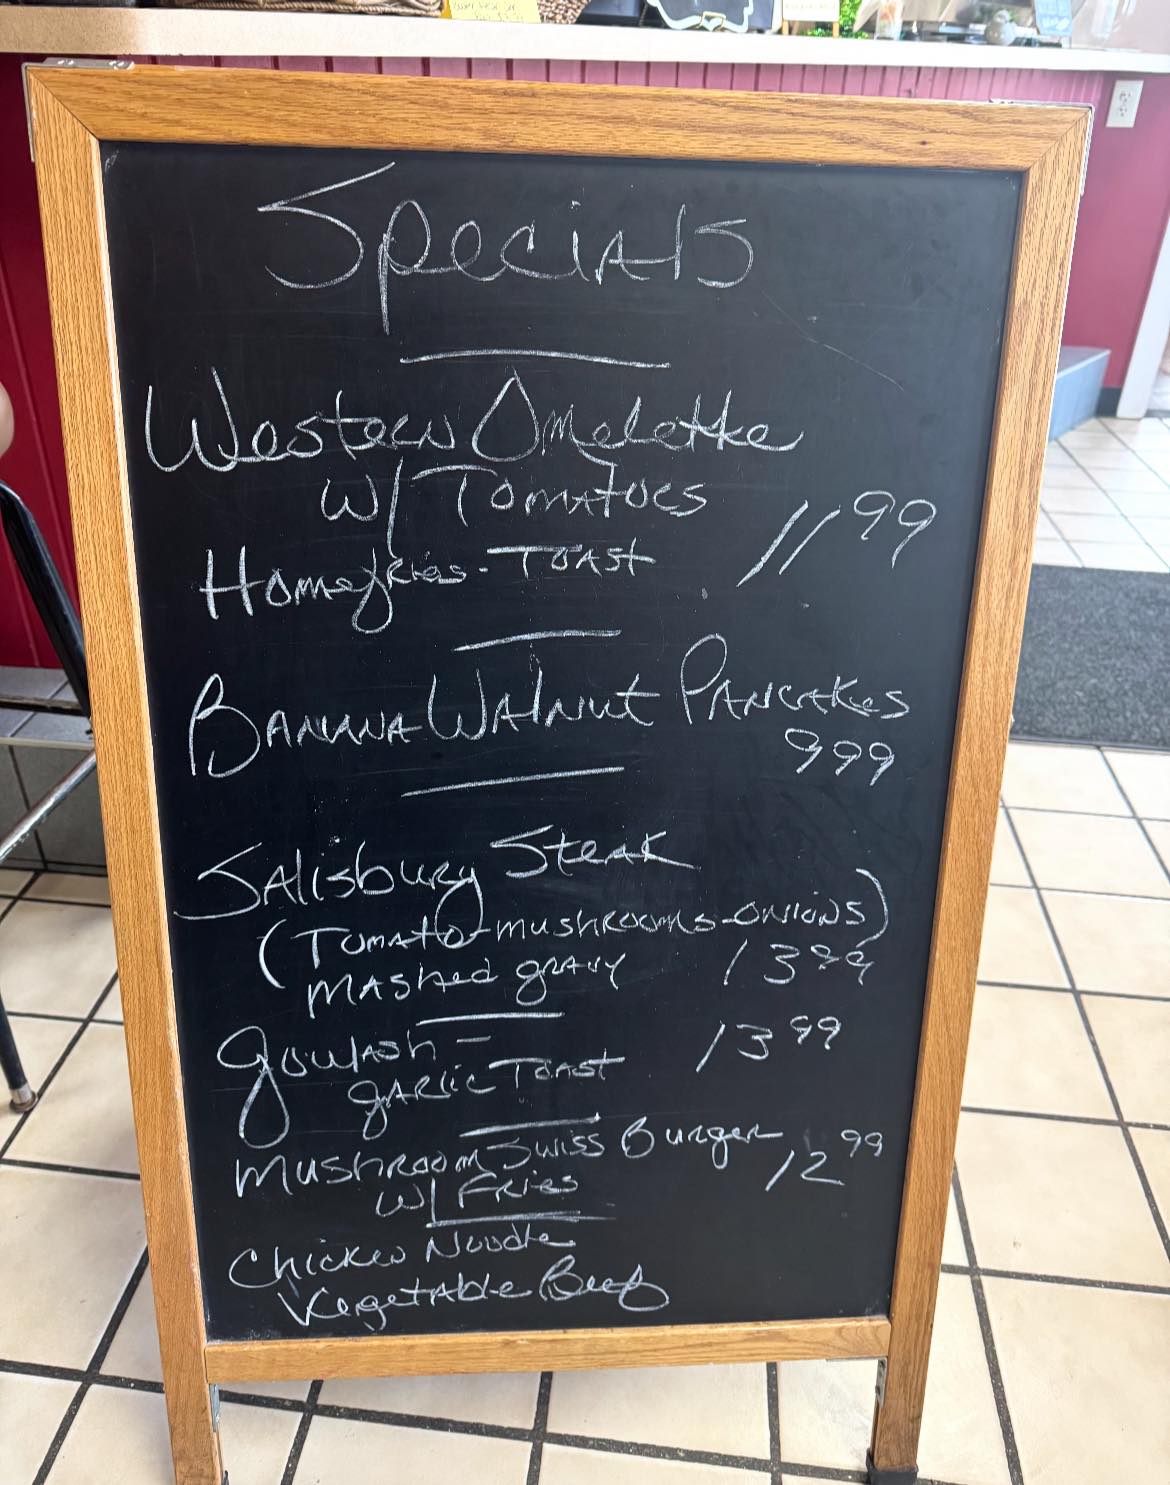 Specials
Western Omelette
w/ Tomatoes
Homefries - Toast 11 99
Banana Walnut Pancakes
999
Salisbury Steak
(Tomato-mushrooms-onions)
mashed gravy 13 99
goulash - 13 99
garlic Toast
mushroom Swiss Burger 12 99
w/ Fries
Chicken Noodle
Vegetable Beef